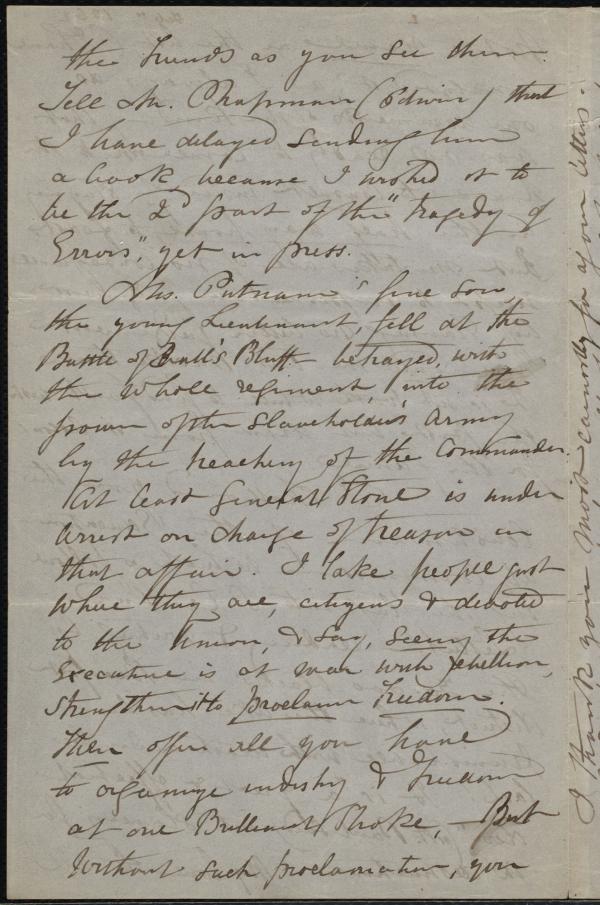 the friends as you see them.
Tell Mr. Chapman (Edwin) that
I have delayed sending him
a book, because I wished it to
be the 2d part of the "Tragedy of
Errors", yet in press.
Mrs. Putnam's fine son,
the young Lieutenant, fell at the
Battle of Ball's Bluff betrayed, with
the whole regiment, into the
power of the Slaveholders Army
by the treachery of the Commander.
At least General Stone is under
arrest on charge of treason in
that affair. I take people just
where they are, citizens & devoted
to the Union, & say, seeing the
Executive is at war with rebellion,
strengthen it to proclaim freedom.
Then offer all you have
to organize industry & freedom
at one Brilliant stroke, — But
without such proclamation, you
I thank you most earnestly for a your letters.